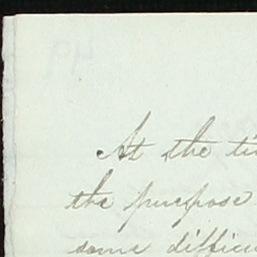 At the ti
the purpose
some difficu